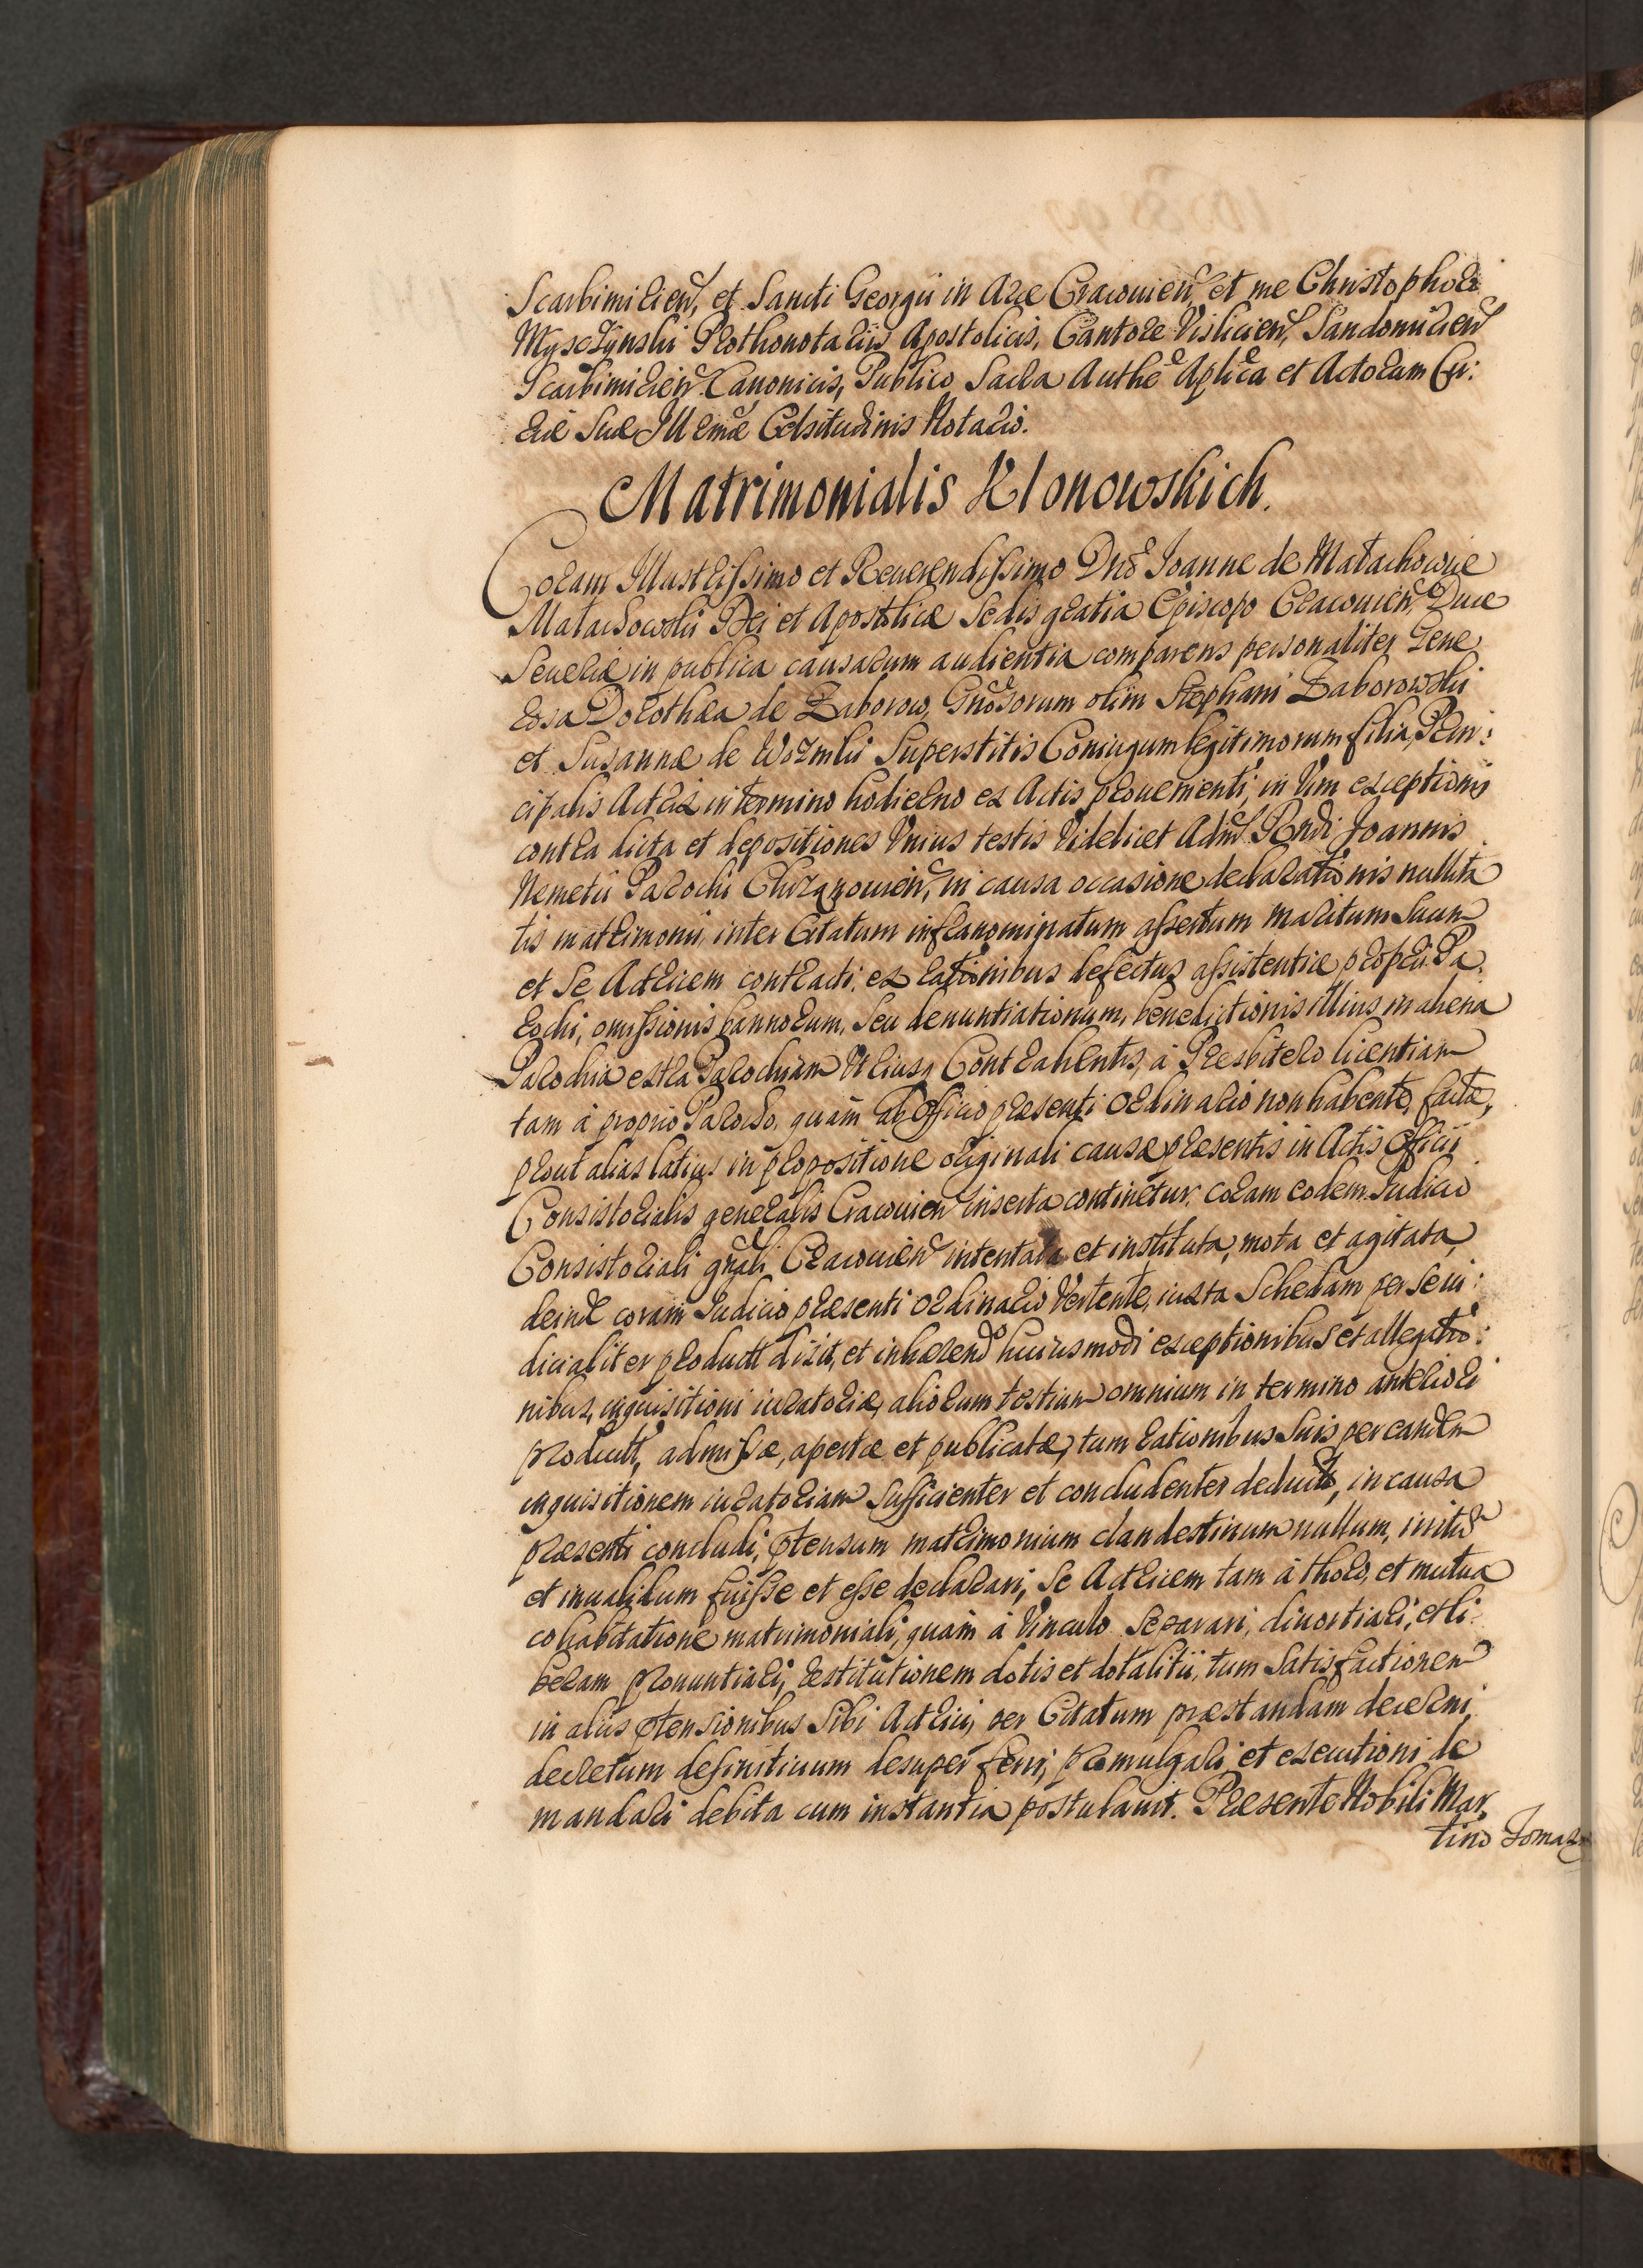 Scarbimirień, et Sancti Georgii in Arce Cracouień, et me Christophoro
Myszynski Prothonotariis Apostolicis, Cantore Vislicień, Sandomirień
Scarbimirień Canonicis, Publico Sacra Authē Aplica et Actorum Cu:
riæ Suæ Illrmæ Celsitudinis Notario.
Matrimonialis Klonowskich.
Coram Illustrissimo et Reuerendissimo Dnō Joanne de Małachowice
Małachowski Dei et Apostolicæ Sedis gratia Episcopo Cracouień, Duce
Seueriæ in publica causarum audientia comparens personaliter Gene
rosa Dorothea de Zaborow, Gnōsorum olim Stephani Zaborowski
et Susannæ de Wozniki Superstitis Coniugum legitimorum filia, Prin:
cipalis Actrix in termino hodierno ex Actis proueniēnti, in Vim exceptionis
contra dicta et depositiones Vnius testis Videlicet Admń Rndi Joannis
Nemetii Parochi Chrzanouień, in causa occasione declarationis nullita
tis matrimonii, inter Citatum infranominatum assertum maritum Suum
et Se Actricem contracti, ex rationibus defectus assistentiæ proprii Pa,
rochi, omissionis bannorum, Seu denuntiationum, benedictionis illius in aliena
Parochia extra Parochiam Vtriusq Contrahentis, à Presbitero licentiam
tam à proprio Parocho, quàm ab Officio præsenti Ordinario non habente, factæ,
prout alias latius in propositione originali causæ præsentis in Actis Officii
Consistorialis generalis Cracouień inserta continetur, coram eodem Judicio
Consistoriali gnāli Cracouień intentata et instituta, mota et agitata,
deinde coram Judicio præsenti Ordinario Vertente, iuxta Schedam per Se iu:
dicialiter productā dixit, et inhærendo huiusmodi exceptionibus et allegatio:
nibus, inquisitioni iuratoriæ, aliorum testium omnium in termino anteriori
productæ, admissæ, apertæ et publicatæ, tum rationibus Suis per eandem
inquisitionem iuratoriam Sufficienter et concludenter deductis, in causa
præsenti concludi, ptensum matrimonium clandestinum nullum, irritū
et inualidum fuisse et esse declarari, Se Actricem tam à thoro, et mutua
cohabitatione matrimoniali, quàm à Vinculo Separari, diuortiari, et li:
beram pronuntiari, restitutionem dotis et dotalitii, tum Satisfactionem
in aliis ptensionibus Sibi Actrici, per Citatum præstandam decerni,
decretum definitiuum desuper ferri, promulgari et executioni de
mandari debita cum instantia postulauit. Præsente Nobili Mar,
tino Tomasz